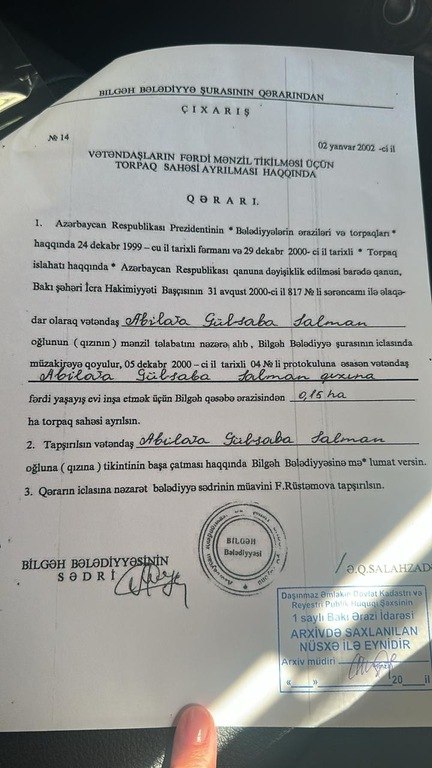 BİLGƏH BƏLƏDİYYƏ ŞURASININ QƏRARINDAN
ÇIXARIŞ
№ 14
02 yanvar 2002 -ci il
VƏTƏNDAŞLARIN FƏRDİ MƏNZİL TİKİLMƏSİ ÜÇÜN
TORPAQ SAHƏSİ AYRILMASI HAQQINDA
QƏRARI.
1. Azərbaycan Respublikası Prezidentinin " Bələdiyyələrin əraziləri və torpaqları "
haqqında 24 dekabr 1999 – cu il tarixli fərmanı və 29 dekabr 2000- ci il tarixli " Torpaq
islahatı haqqında " Azərbaycan Respublikası qanuna dəyişiklik edilməsi barədə qanun,
Bakı şəhəri İcra Hakimiyyəti Başçısının 31 avqust 2000-ci il 817 № li sərəncamı ilə əlaqə-
dar olaraq vətəndaş Salman
oğlunun ( qızının ) mənzil tələbatını nəzərə alıb , Bilgəh Bələdiyyə şurasının iclasında
müzakirəyə qoyulur, 05 dekabr 2000 – ci il tarixli 04 № li protokuluna əsasən vətəndaş
Salman qızına
fərdi yaşayış evi inşa etmək üçün Bilgəh qəsəbə ərazisindən 0,15 ha
ha torpaq sahəsi ayrılsın.
2. Tapşırılsın vətəndaş Salman
oğluna ( qızına ) tikintinin başa çatması haqqında Bilgəh Bələdiyyəsinə mə" lumat versin.
3. Qərarın iclasına nəzarət bələdiyyə sədrinin müavini F.Rüstəmova tapşırılsın.
BİLGƏH
Bələdiyyəsi
BİLGƏH BƏLƏDİYYƏSİNİN
SƏDRİ
Ə.Q.SALAHZAD
Daşınmaz Əmlakın Dövlət Kadastrı və
Reyestri Publik Hüquqi Şəxsinin
1 saylı Bakı Ərazi İdarəsi
ARXİVDƏ SAXLANILAN
NÜSXƏ İLƏ EYNİDİR
Arxiv müdiri
«___» 20___il